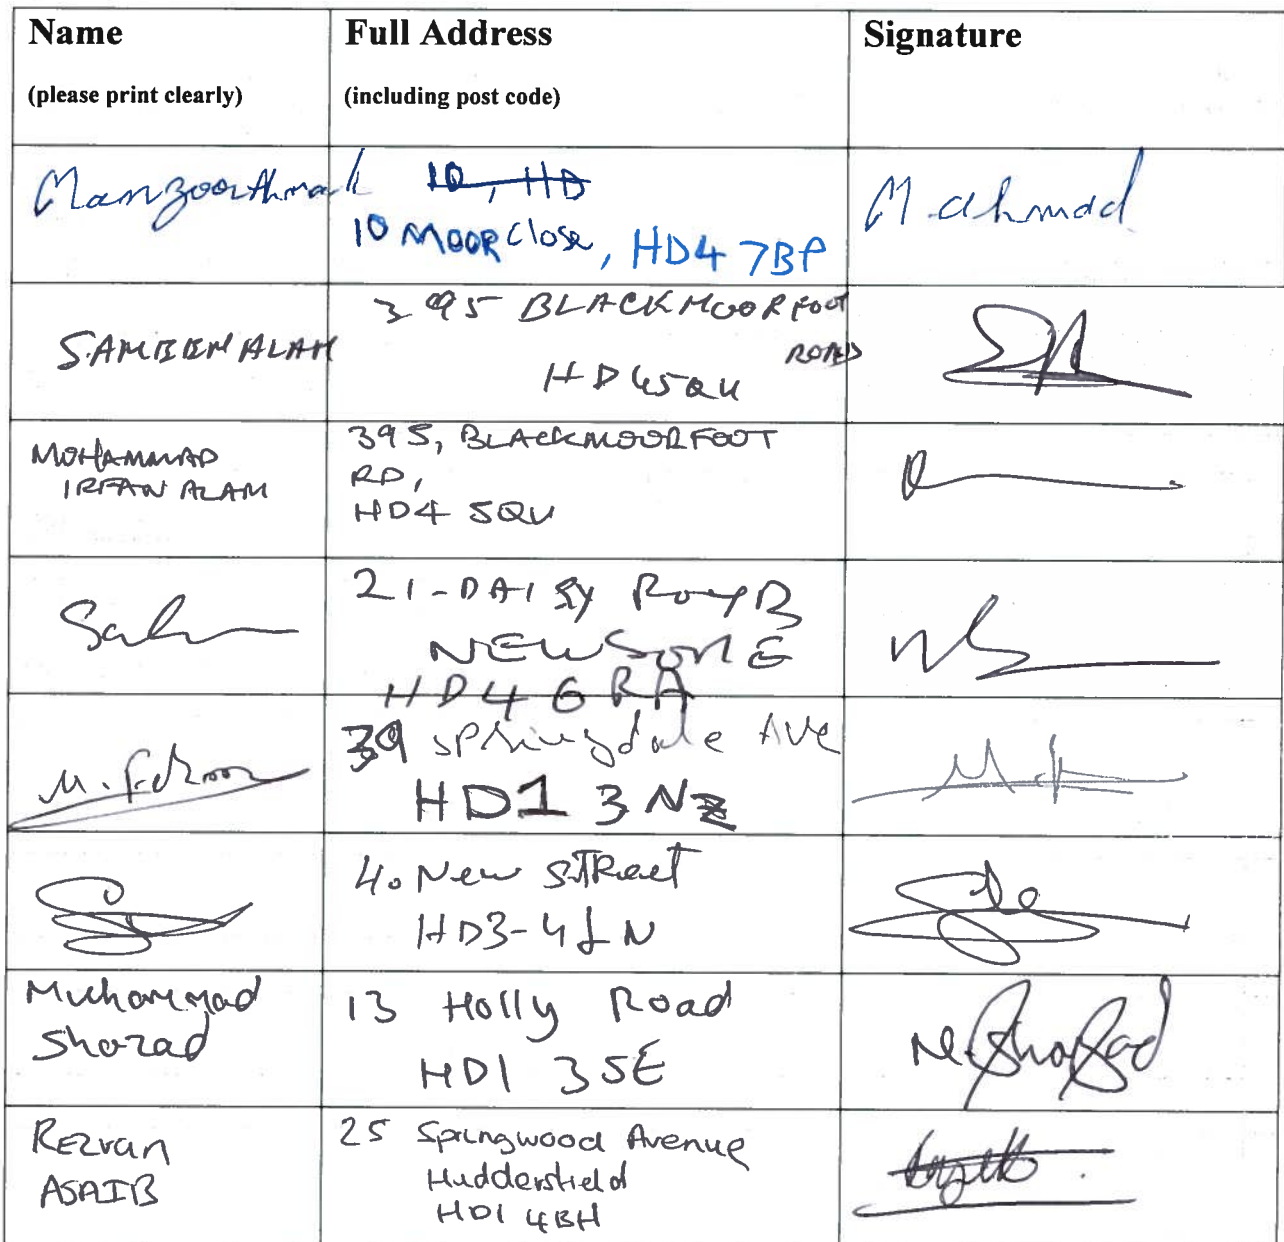 Name
Full Address
Signature
(please print clearly)
(including post code)
Manzoor Ahmad
10, HD
10 MOOR Close, HD4 7BP
M. ahmad
SAMEEN ALAM
395 BLACKMOORFOOT
ROAD
HD4 5QU
MOHAMMAD
IRFAN ALAM
395, BLACKMOORFOOT
RD,
HD4 5QU
21-DAISY
NEWSOME
HD4 6RA
39 Springdale Ave
HD1 3NZ
40 New STReet
HD3-4LN
Muhammad
Shazad
13 Holly Road
HD1 3SE
M. Shazad
Rezvan
ASAIB
25 Springwood Avenue
Huddersfield
HD1 4BH